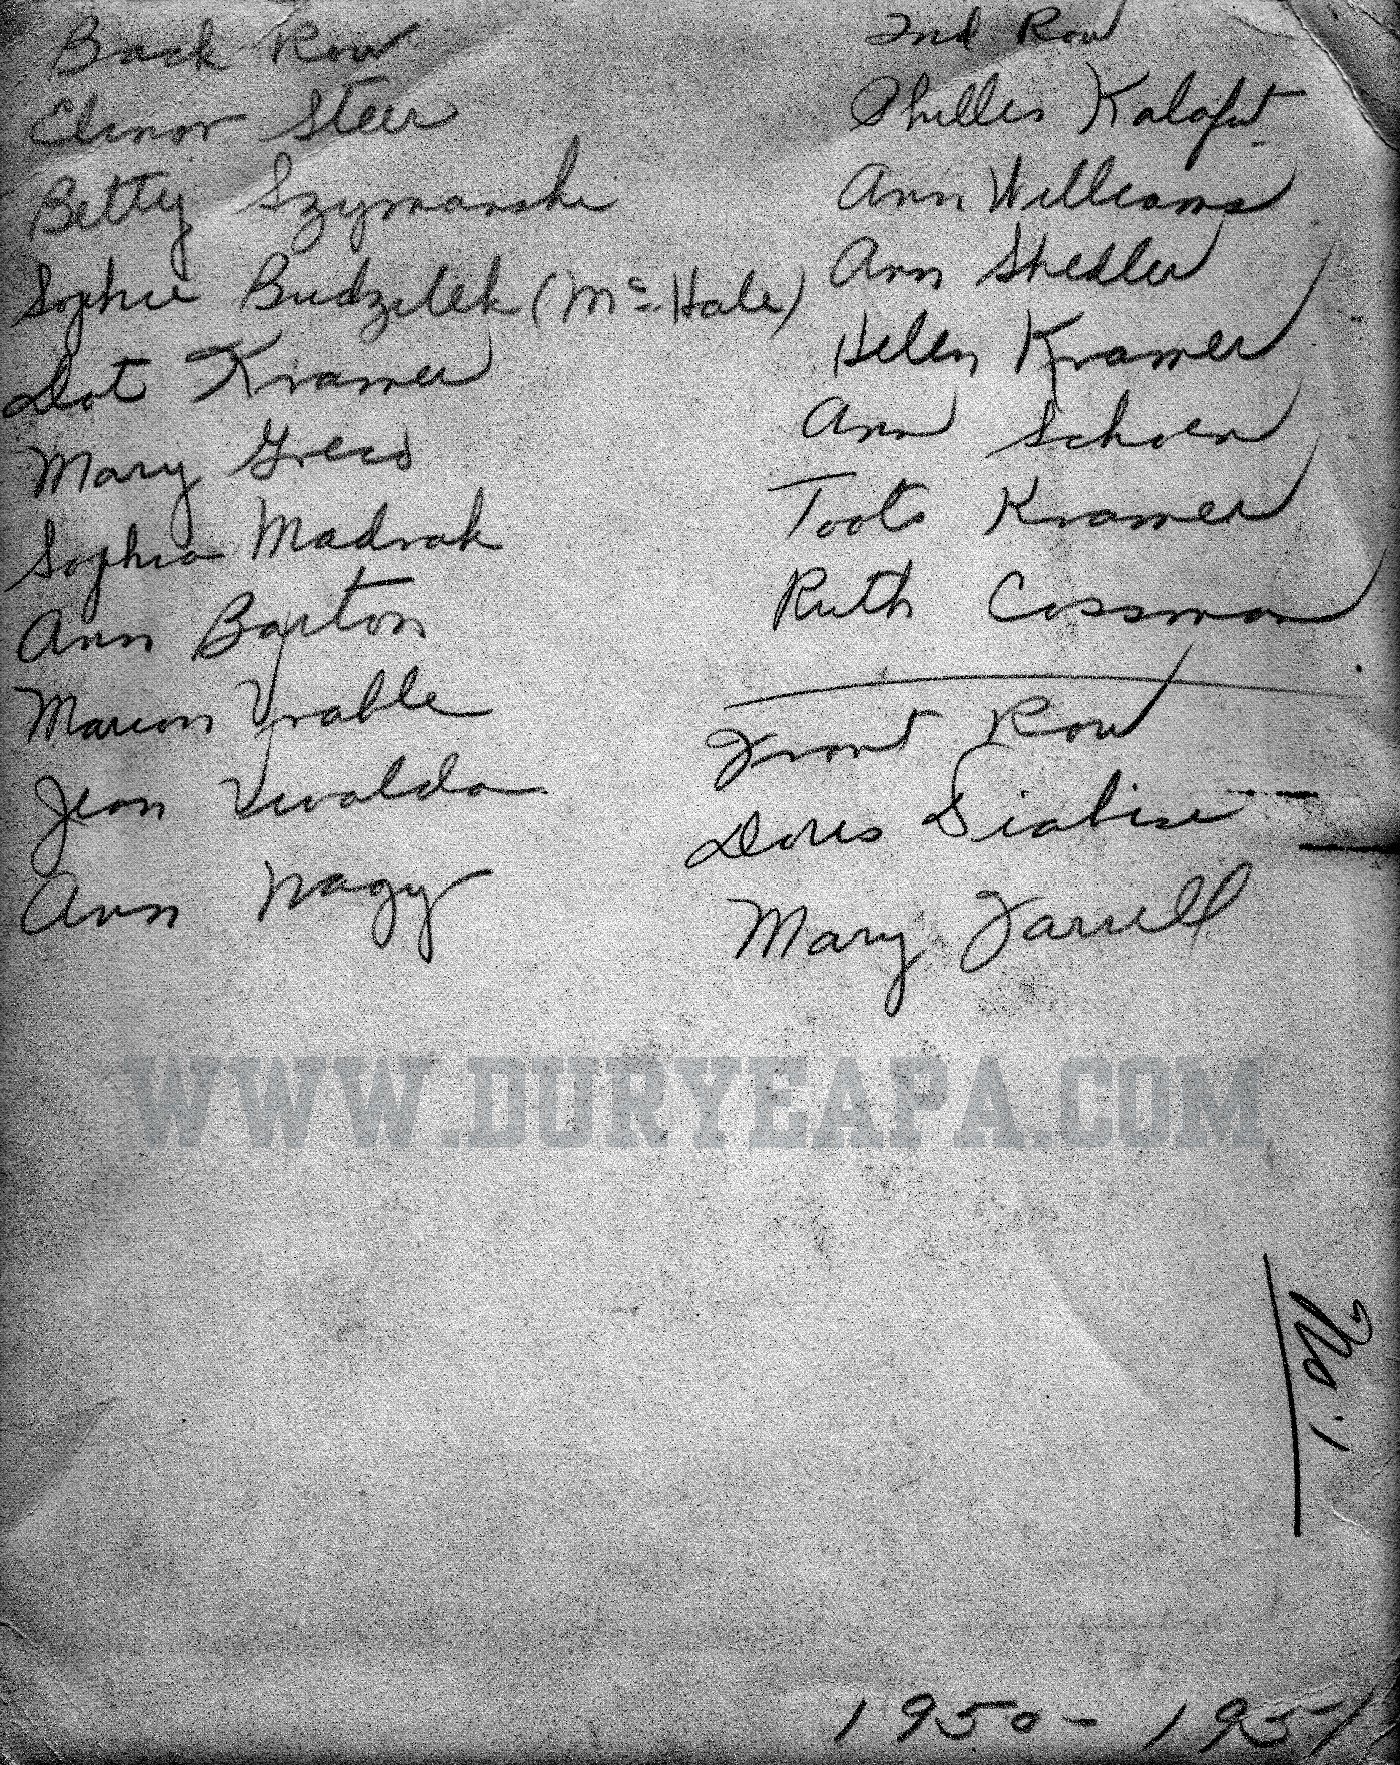 Back Row
Elinor Steer
Betty Szymanski
Sophie Budzilek (Mc Hale)
Dot Kramer
Mary Greco
Sophia Madrak
Ann Barton
Marion Vrable
Jean Vivalda
Ann Nagy
2nd Row
Phillis Kalafut
Ann Williams
Ann Shedler
Helen Kramer
Ann Schoen
Toots Kramer
Ruth Cossman
Front Row
Doris
Mary Farrell
WWW.DURYEAPA.COM
No. 1
1950-1951